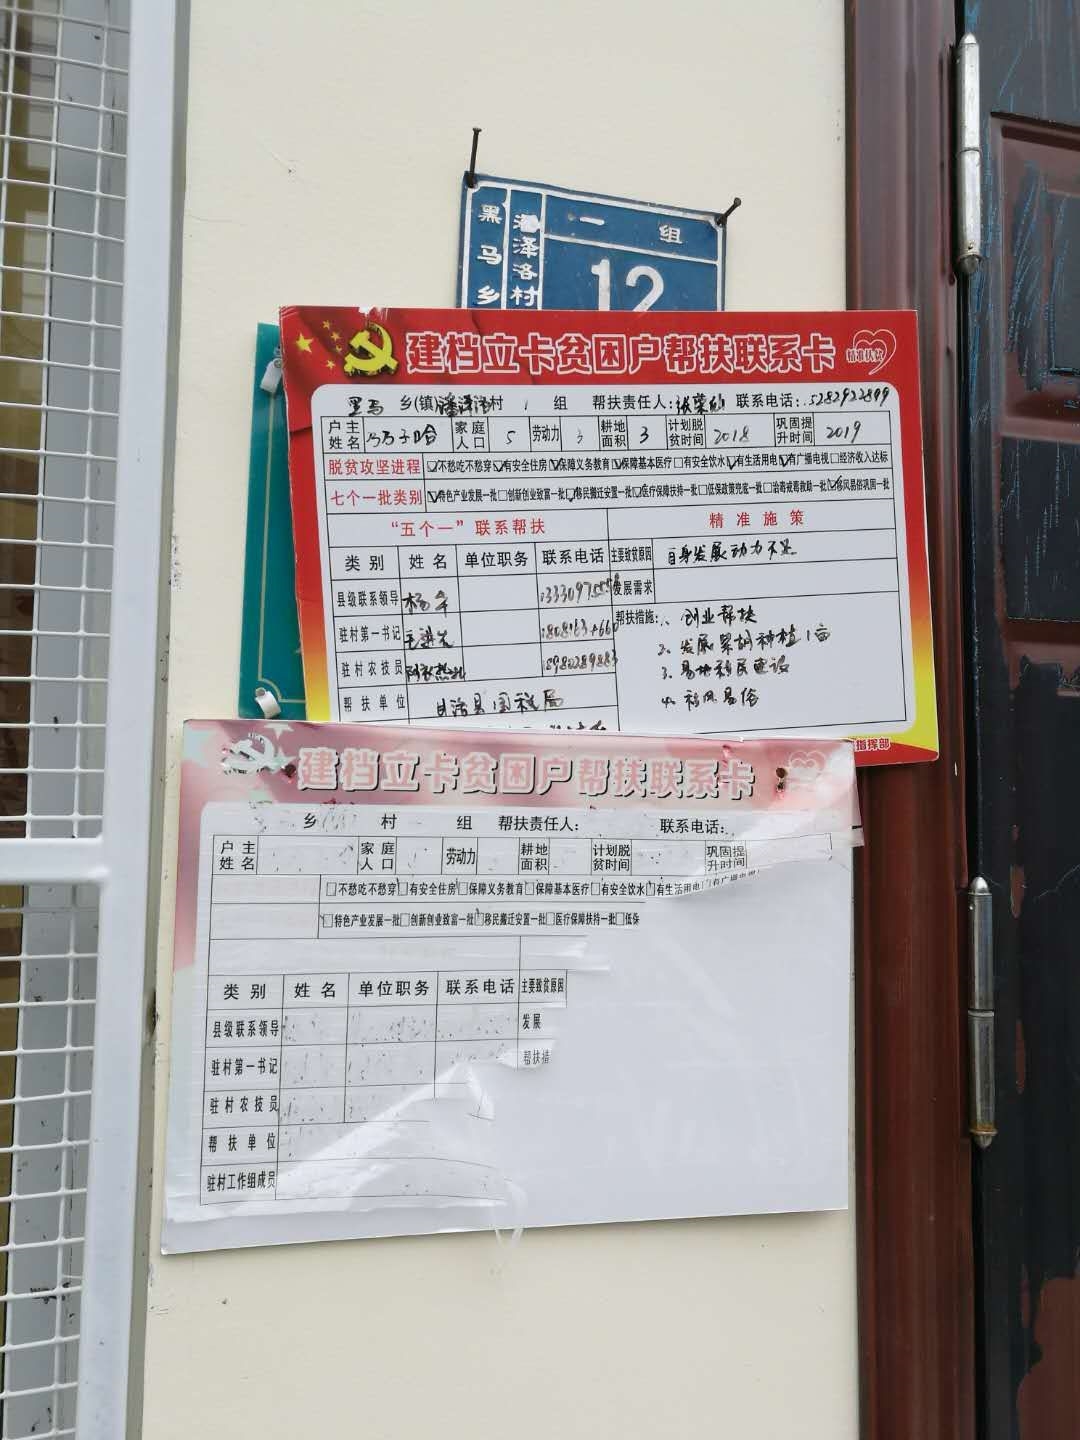 黑马乡
潘泽洛村
一组
12
建档立卡贫困户帮扶联系卡
精准扶贫
黑马 乡(镇)潘泽洛村 1 组 帮扶责任人: 联系电话:
户主姓名 子哈 家庭人口 5 劳动力 3 耕地面积 3 计划脱贫时间 2018 巩固提升时间 2019
脱贫攻坚进程 ☑不愁吃不愁穿☑有安全住房☑保障义务教育☑保障基本医疗□有安全饮水☑有生活用电☑有广播电视□经济收入达标
七个一批类别 ☑特色产业发展一批□创新创业致富一批☑移民搬迁安置一批☑医疗保障扶持一批□低保政策兜底一批□治毒戒毒救助一批☑移风易俗巩固一批
“五个一”联系帮扶 精准施策
类别 姓名 单位职务 联系电话 主要致贫原因 自身发展动力不足
县级联系领导 杨 发展需求
驻村第一书记 帮扶措施: 1、创业帮扶
2、发展 种植1亩
驻村农技员 18980289883 3、易地移民建设
帮扶单位 自治县国税局 4、移风易俗
指挥部
建档立卡贫困户帮扶联系卡
乡 村 组 帮扶责任人: 联系电话:
户主姓名 家庭人口 劳动力 耕地面积 计划脱贫时间 巩固提升时间
□不愁吃不愁穿□有安全住房□保障义务教育□保障基本医疗□有安全饮水□有生活用电□有广播电视
□特色产业发展一批□创新创业致富一批□移民搬迁安置一批□医疗保障扶持一批□低保
类别 姓名 单位职务 联系电话 主要致贫原因
县级联系领导 发展
驻村第一书记 帮扶措
驻村农技员
帮扶单位
驻村工作组成员